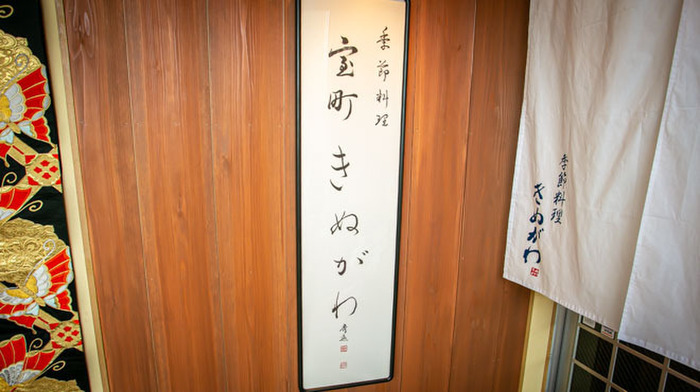 季節料理
室町きぬがわ
季節料理
きぬがわ